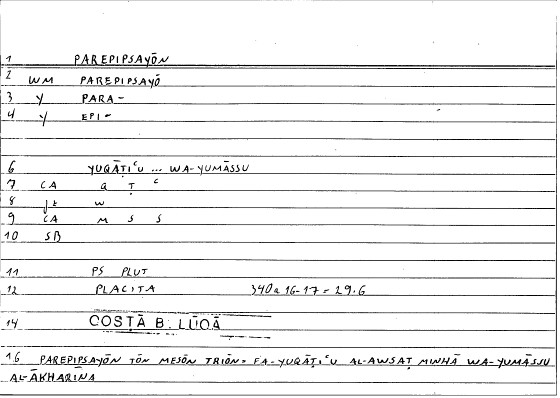 1 PAREPIPSAYŌN
2 WM PAREPIPSAYŌ
3 Y PARA-
4 Y EPI-
6 YUQĀṬIᶜU ... WA-YUMĀSSU
7 CA Q Ṭ ᶜ
8 W
9 CA M S S
10 SB
11 PS PLUT
12 PLACITA 340a 16-17 = 29.6
14 COSṬĀ B. LŪQĀ
16 PAREPIPSAYŌN TŌN MESŌN TRIŌN = FA-YUQĀṬIᶜU AL-AWSAṬ MINHĀ WA-YUMĀSSU
AL-ĀKHARĪNA